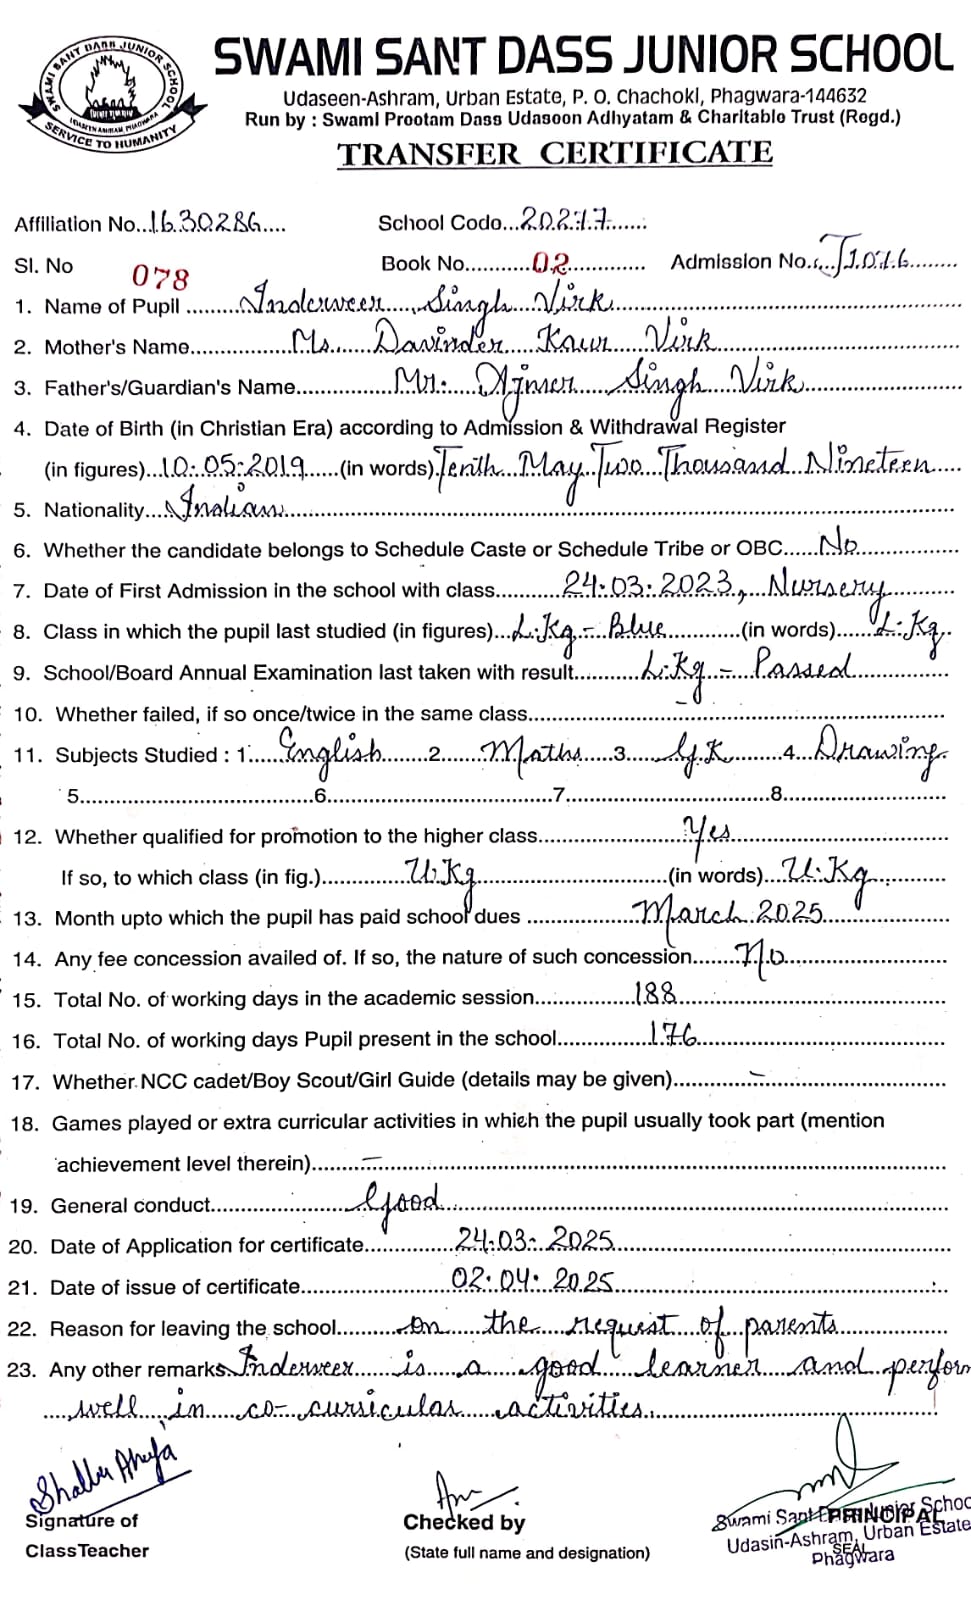 SWAMI SANT DASS JUNIOR SCHOOL
SWAMI SANT DASS JUNIOR SCHOOL
UDASEEN ASHRAM, PHAGWARA
SERVICE TO HUMANITY
Udaseen-Ashram, Urban Estate, P. O. Chachoki, Phagwara-144632
Run by : Swami Preetam Dass Udaseen Adhyatam & Charitable Trust (Regd.)
TRANSFER CERTIFICATE
Affiliation No...1630286.... School Code...20217......
Sl. No 078 Book No...........02............. Admission No....J1076........
1. Name of Pupil ........Inderveer Singh Virk
2. Mother's Name...............Ms. Davinder Kaur Virk
3. Father's/Guardian's Name...............Mr. Ajmer Singh Virk
4. Date of Birth (in Christian Era) according to Admission & Withdrawal Register
(in figures)...10.05.2019......(in words) Tenth May Two Thousand Nineteen....
5. Nationality....Indian
6. Whether the candidate belongs to Schedule Caste or Schedule Tribe or OBC......No
7. Date of First Admission in the school with class...........24.03.2023, Nursery
8. Class in which the pupil last studied (in figures)...L.Kg - Blue............(in words)......L.Kg.
9. School/Board Annual Examination last taken with result...........L.Kg - Passed
10. Whether failed, if so once/twice in the same class
11. Subjects Studied : 1. English 2. Maths 3. G.K 4. Drawing
5.......................................6.......................................7...................................8...........................
12. Whether qualified for promotion to the higher class..............Yes
If so, to which class (in fig.)..............U.Kg................(in words)....U.Kg
13. Month upto which the pupil has paid school dues .................March 2025
14. Any fee concession availed of. If so, the nature of such concession.......No
15. Total No. of working days in the academic session...............188
16. Total No. of working days Pupil present in the school..............176
17. Whether NCC cadet/Boy Scout/Girl Guide (details may be given)............–
18. Games played or extra curricular activities in which the pupil usually took part (mention
achievement level therein)........–
19. General conduct......................Good
20. Date of Application for certificate.............24.03.2025
21. Date of issue of certificate....................02.04.2025
22. Reason for leaving the school..........On the request of parents
23. Any other remarks Inderveer is a good learner and perform
well in co-curricular activities.
Shallu Ahuja
Signature of
ClassTeacher
Checked by
(State full name and designation)
PRINCIPAL
SEAL
Swami Sant Dass Junior School
Udasin-Ashram, Urban Estate
Phagwara